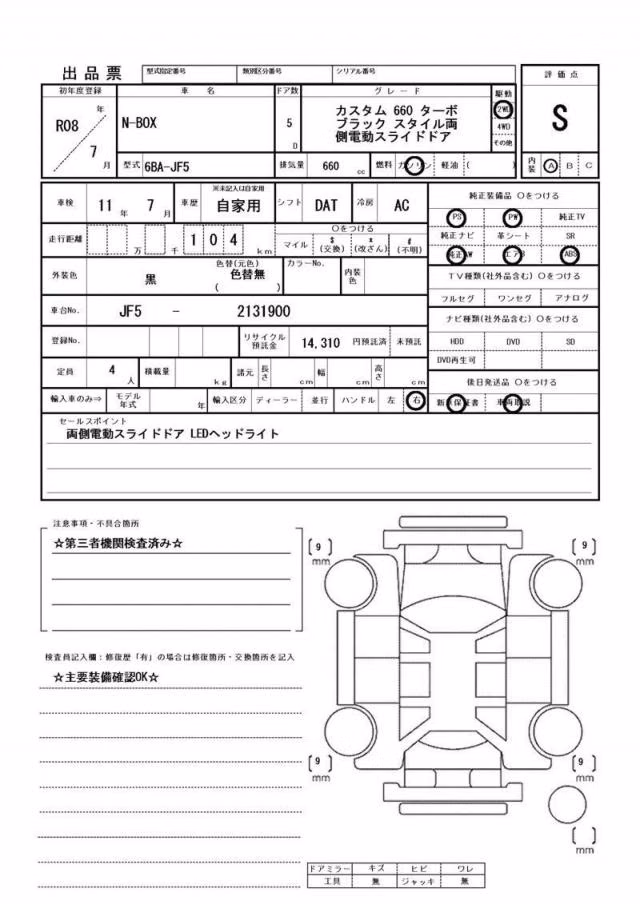 出品票 型式指定番号 類別区分番号 シリアル番号
評価点
S
内装 A B C
初年度登録 車名 ドア数 グレード 駆動
R08 年 7 月
N-BOX
5 D
カスタム 660 ターボ
ブラック スタイル両
側電動スライドドア
2WD
4WD
その他
型式 6BA-JF5 排気量 660 cc 燃料 ガソリン 軽油 ( )
車検 11 年 7 月 車歴 ※未記入は自家用 自家用 シフト DAT 冷房 AC
走行距離 万 千 1 0 4 km
○をつける
マイル $(交換) x(改ざん) #(不明)
外装色 黒 色替(元色) 色替無 ( ) カラーNo. 内装色
車台No. JF5 - 2131900
登録No. リサイクル預託金 14,310 円預託済 未預託
定員 4 人 積載量 kg 諸元 長さ cm 幅 cm 高さ cm
輸入車のみ⇒ モデル年式 年 輸入区分 ディーラー 並行 ハンドル 左 右
純正装備品 ○をつける
PS PW 純正TV
純正ナビ 革シート SR
純正AW エアB ABS
TV種類(社外品含む) ○をつける
フルセグ ワンセグ アナログ
ナビ種類(社外品含む) ○をつける
HDD DVD SD
DVD再生可
後日発送品 ○をつける
新車保証書 車両取説
セールスポイント
両側電動スライドドア LEDヘッドライト
注意事項・不具合箇所
☆第三者機関検査済み☆
検査員記入欄:修復歴「有」の場合は修復箇所・交換箇所を記入
☆主要装備確認OK☆
[9] mm
[9] mm
[9] mm
[9] mm
[ ] mm
ドアミラー キズ ヒビ ワレ
工具 無 ジャッキ 無